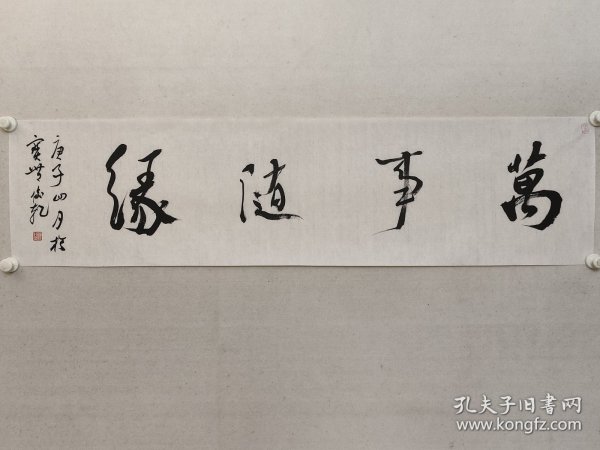 萬事随緣
庚子四月於
寶
孔夫子旧書网
www.kongfz.com